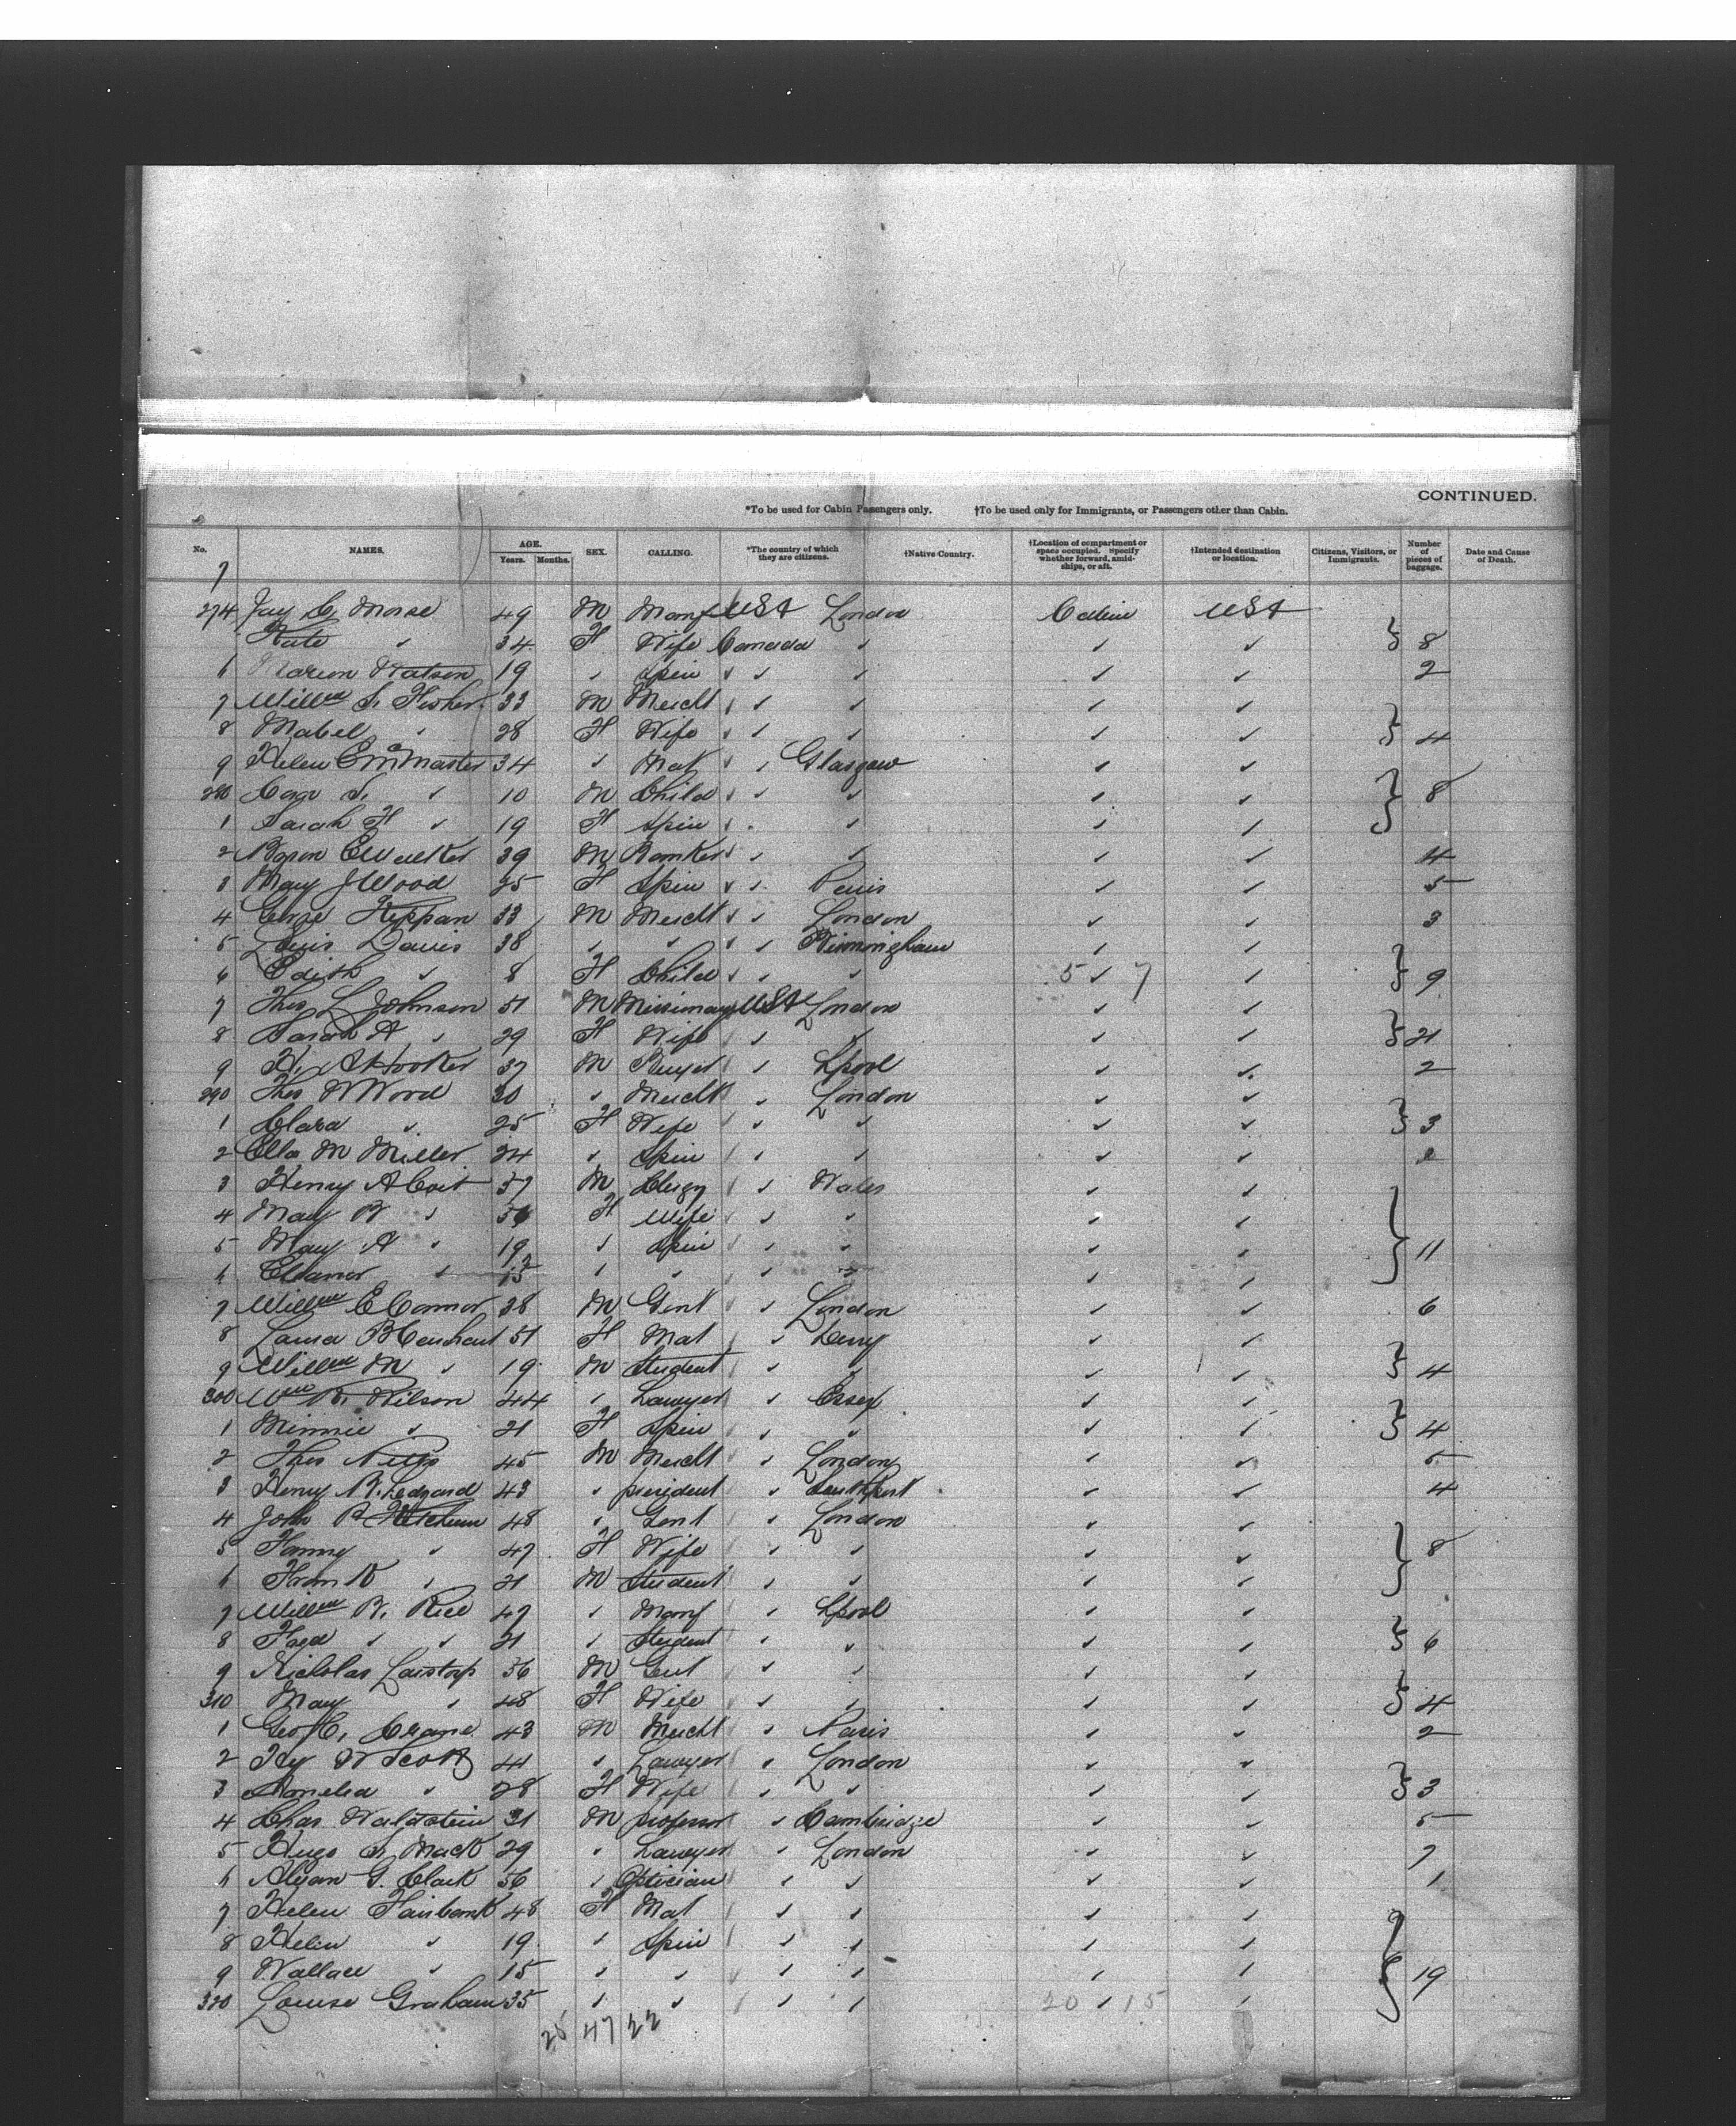 CONTINUED.
*To be used for Cabin Passengers only. †To be used only for Immigrants, or Passengers other than Cabin.
No. NAMES. AGE. Years. Months. SEX. CALLING. *The country of which they are citizens. †Native Country. †Location of compartment or space occupied. Specify whether forward, amidships, or aft. †Intended destination or location. Citizens, Visitors, or Immigrants. Number of pieces of baggage. Date and Cause of Death.
7
274 Jay C. Morse 49 M Manf USA London USA
Kate " 34 F Wife Canada " " " } 8
6 Marion Watson 19 " Spin " " " " " 2
7 Willm S. Fisher 33 M Mercht " " " " "
8 Mabel " 28 F Wife " " " " " } 4
9 Helen E McMaster 34 " Mat " " Glasgow " "
280 S. " 10 M Child " " " " " } 8
1 Sarah H " 19 F Spin " " " " "
2 Byron E Walker 39 M Banker " " " " " 4
3 May J Wood 25 F Spin " " Paris " " 5
4 33 M Mercht " " London " " 3
5 Louis Davis 38 " " " " Birmingham " "
6 Edith " 8 F Child " " " 5 " 7 " } 9
7 Thos L Johnson 51 M Missionary USA London " "
8 Sarah A " 29 F Wife " " " " } 21
9 H. A Hooker 37 M Buyer " Lpool " " 2
290 Thos W Wood 30 " Mercht " London " "
1 Clara " 25 F Wife " " " " } 3
2 Ella M Miller 24 " Spin " " " "
3 Henry A Coit 57 M Clergy " Wales " "
4 Mary B " F Wife " " " "
5 Mary A " 19 " Spin " " " " } 11
6 Eleanor " " " " " " "
7 Willm E Connor 38 M Gent " London " " 6
8 Laura 51 F Mat " Derry " "
9 Willm M " 19 M Student " " " " } 4
300 Wm R. Wilson 44 " Lawyer " Essex " "
1 Minnie " 21 F Spin " " " " } 4
2 Thos 45 M Mercht " London " " 5
3 Henry B. Ledyard 43 " president " Southport " " 4
4 John B Ketchum 48 " Gent " London " "
5 Fanny " 47 F Wife " " " " } 8
6 Frank " 21 M Student " " " "
7 Willm B. Rice 47 " Manf " Lpool " "
8 " " 21 " Student " " " " } 6
9 Nicholas 56 M Gent " " " "
310 Mary " 48 F Wife " " " " } 4
1 Geo C. Crane 43 M Mercht " Paris " " 2
2 Hy W Scott 44 " Lawyer " London " "
3 Amelia " 28 F Wife " " " " } 3
4 Chas Waldstein 31 M professor " Cambridge " " 5
5 Hugo S. Mack 29 " Lawyer " London " " 7
6 Alvan G. Clark 56 " Optician " " " " 1
7 Helen Fairbank 48 F Mat " " " "
8 Helen " 19 " Spin " " " "
9 Wallace " 15 " " " " " " } 19
320 Louise Graham 35 " " " " 20 " 15 "
25 47 22